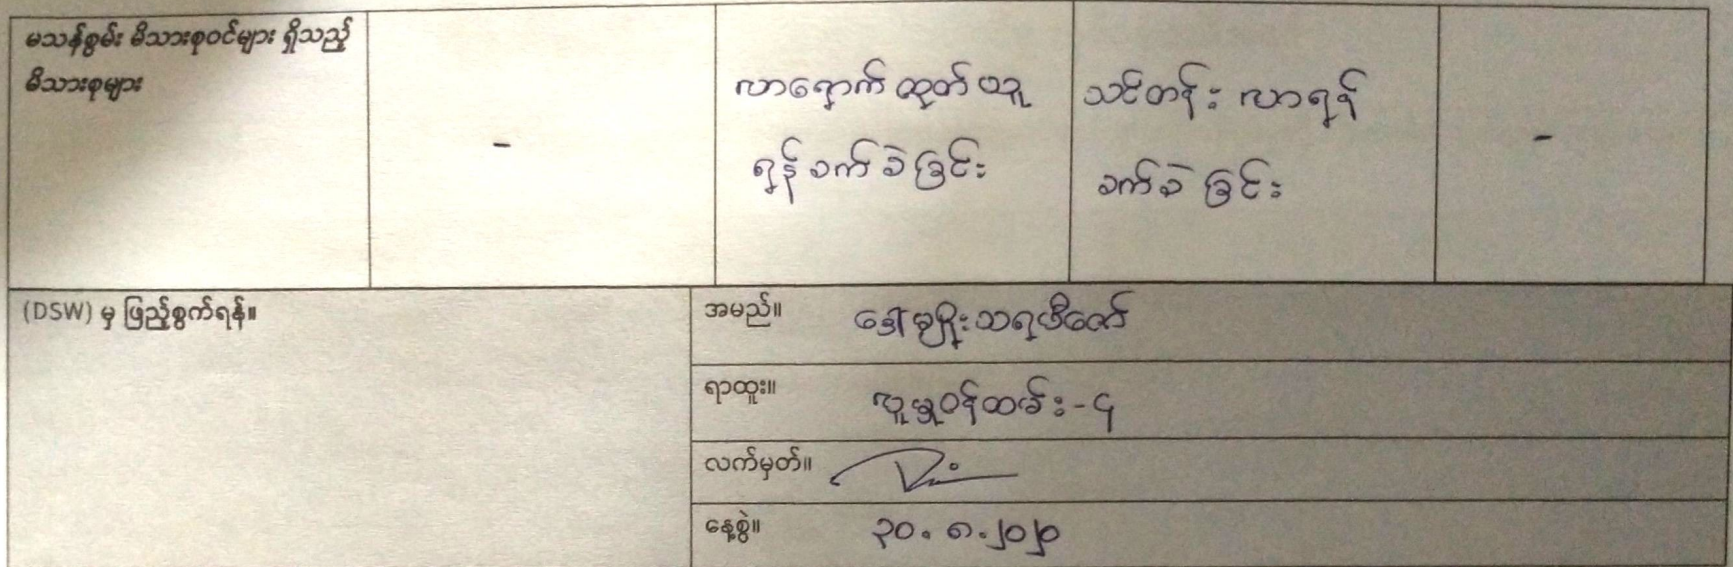 မသန်စွမ်း မိသားစုဝင်များ ရှိသည့်
မိသားစုများ
-
လာရောက် ထုတ် ယူ
ရန် ခက် ခဲ ခြင်း
သင်တန်း လာရန်
ခက်ခဲ ခြင်း
-
(DSW) မှ ဖြည့်စွက်ရန်။
အမည်။ ဒေါ်မျိုးသရဖီဇော်
ရာထူး။ လူမှုဝန်ထမ်း - ၄
လက်မှတ်။
နေ့စွဲ။ ၃၀.၈.၂၀၂၀